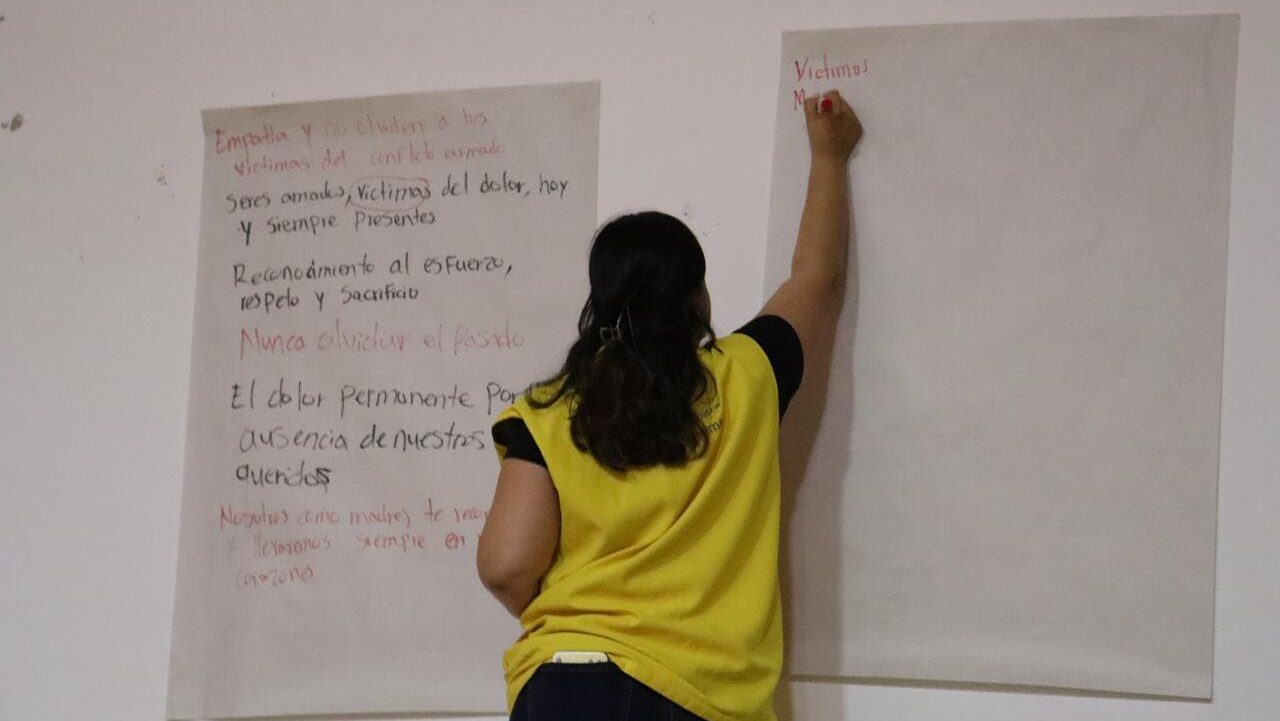 Empatia y no olviden a las
victimas del conflicto armado
Seres amados, victimas del dolor, hoy
y siempre presentes
Reconocimiento al esfuerzo,
respeto y sacrificio
Nunca olvidar el pasado
El dolor permanente por
ausencia de nuestros
queridos
Nosotros como madres te
y llevaremos siempre en
corazones
Victimas
M